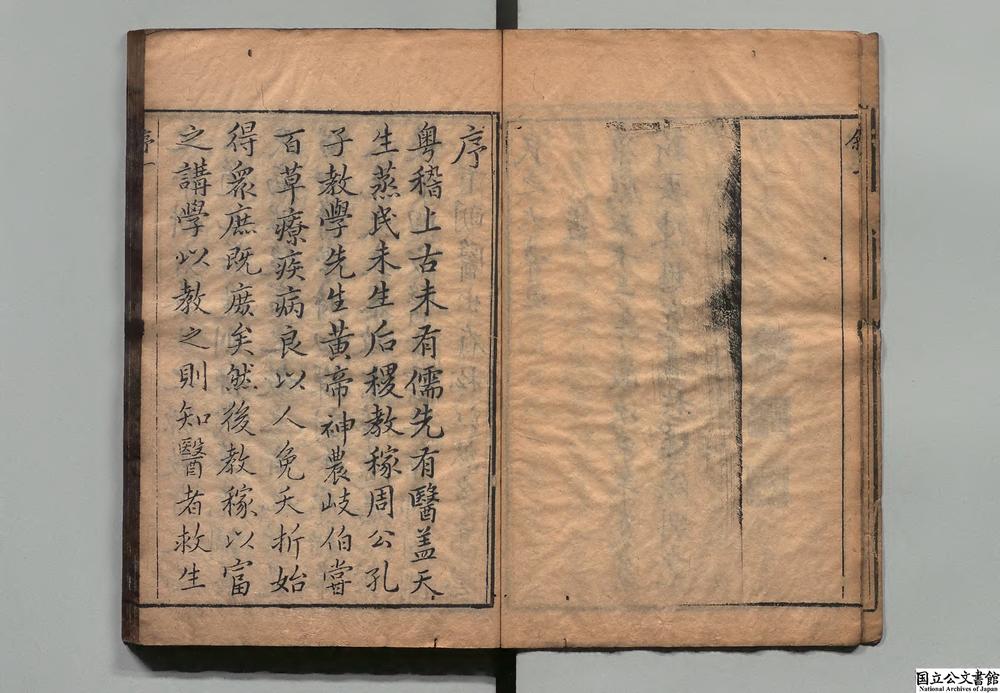 序
粤稽上古未有儒先有醫盖天
生蒸民未生后稷教稼周公孔
子教學先生黄帝神農岐伯嘗
百草療疾病良以人免夭折始
得衆庶既庶矣然後教稼以富
之講學以教之則知醫者救生
序一
国立公文書館
National Archives of Japan